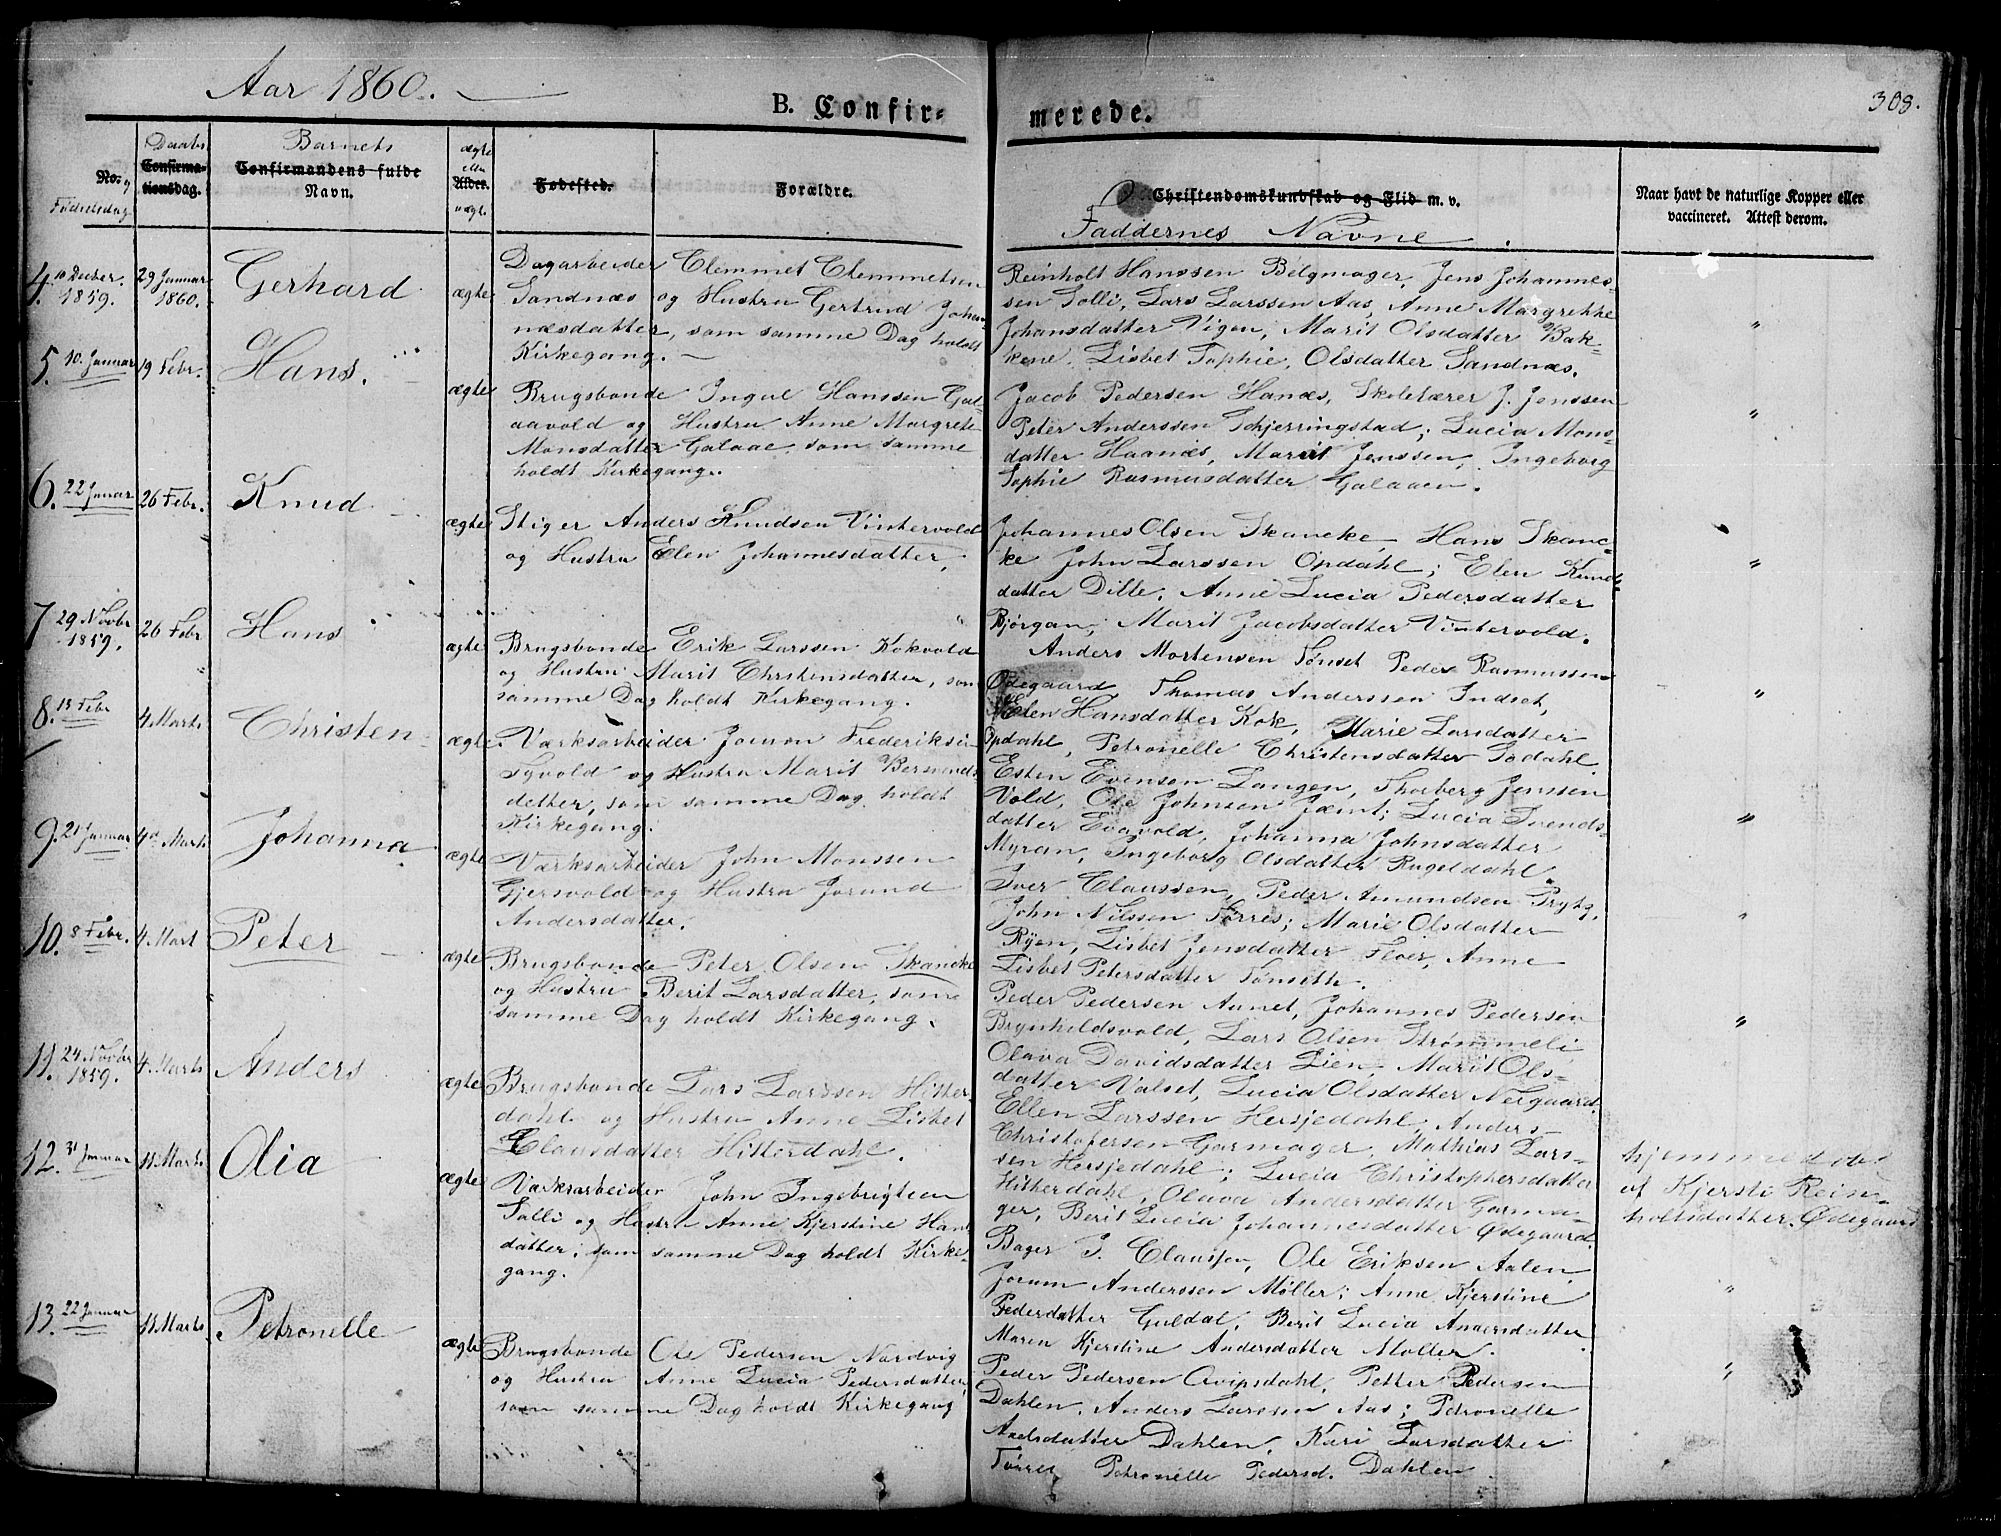 Aar 1860.
B. Confirmerede.
308.
No. Fødselsdag
Daabs
Confirmationsdag.
Barnets
Confirmandens fulde
Navn.
ægte
eller
Alder.
uægte.
Fødested.
Forældre.
Christendomskundskab og Flid m. v.
Faddernes Navne.
Naar havt de naturlige Kopper eller
vaccineret. Attest derom.
4. 10 Decber. 1859. 29 Januar 1860. Gerhard ægte
Dagarbeider Clemmet Clemmetsen
Sandnæs og Hustru Gertrud Johan-
næsdatter, som samme Dag holdt
Kirkegang.
Reinholt Hanssen Bælgmager, Jens Johannes-
sen Solli, Lars Larssen Aas, Anne Margrethe
Johansdatter Vigen, Marit Olsdatter Bak-
kene, Lisbet Sophie Olsdatter Sandnæs.
"
5. 10 Januar 19 Febr. Hans. ægte
Brugsbonde Ingul Hanssen Gal-
aavold og Hustru Anne Margrete
Monsdatter Galaae, som samme
holdt Kirkegang.
Jacob Pedersen Hanæs, Skolelærer J. Jenssen
Peter Anderssen Schjerringstad; Lucia Mons-
datter Haanæs, Marit Jenssen, Ingeborg
Sophie Rasmusdatter Galaaen.
"
6. 22 Januar 26 Febr. Knud ægte
Stiger Anders Knudsen Vintervold
og Hustru Elen Johannesdatter,
Johannes Olsen Skancke, Hans Skanc-
ke John Larssen Opdahl; Elen Knuds-
datter Dille, Anne Lucia Pedersdatter
Bjørgan, Marit Jacobsdatter Vintervold.
"
7. 29 Novbr 1859. 26 Febr Hans ægte
Brugsbonde Erik Larssen Kokvold
og Hustru Marit Chrstensdatter, som
samme Dag holdt Kirkegang.
Anders Mortensen Tønset Peder Rasmussen
Ødegaard, Thomas Anderssen Indset,
Elen Hansdatter Kok, Marie Larsdatter
Opdahl, Petronelle Christensdatter Sødahl.
"
8. 15 Febr 4. Marts Christen ægte
Værksarbeider Joeron Frederiksen
Tyvold og Hustru Marit Bersvends-
datter, som samme Dag holdt
Kirkegang.
Esten Evensen Langen, Thorberg Jenssen
Vold, Ole Johnsen Jæmt; Lucia Svends-
datter Evavold, Johanna Johnsdatter
Myran, Ingeborg Olsdatter Rugeldahl.
"
9. 21 Januar 4de Marts Johanna ægte
Værksarbeider John Monssen
Gjersvold og Hustru Jorund
Andersdatter.
Iver Claussen, Peder Amundsen Prytz,
John Nilssen Tørres; Marie Olsdatter
Ryen, Lisbet Jensdatter Fløier, Anne
Lisbet Petersdatter Tønseth.
"
10. 8 Febr. 4. Mart Peter ægte
Brugsbonde Peter Olsen Skancke
og Hustru Berit Larsdatter, som
samme Dag holdt Kirkegang.
Peder Pedersen Aunet, Johannes Pedersen
Brynhildsvold, Lars Olsen Strømmeli
Olava Davidsdatter Lien, Marit Ols-
datter Valset, Lucia Olsdatter Neegaard.
"
11. 24. Novbr 1859. 4. Marts Anders ægte
Brugsbonde Lars Larssen Hitter-
dahl og Hustru Anne Lisbet
Clausdatter Hitterdahl.
Ellen Larssen Hersjedahl, Anders
Christofersen Garmager, Mathias Lars-
sen Hersjedahl; Lucia Christophersdatter
Hitterdahl, Olava Andersdatter Garma-
ger, Berit Lucia Johannesdatter Ødegaard.
hjemmedøbt
af Kjersti Rein-
holtsdatter Ødegaard
12. 31 Januar 11. Marts Olia ægte
Værksarbeider John Ingebrigtsen
Solli og Hustru Anne Kjerstine Hans
datter, som samme Dag holdt Kirke-
gang.
Bager J. Clausson, Ole Eriksen Aalen,
Joeram Anderssen Møller; Anne Kjerstine
Pedersdatter Guldal, Berit Lucia Andersdatter
Maren Kjerstine Andersdatter Møller.
"
13. 22 Januar 11. Marts Petronelle ægte
Brugsbonde Ole Pedersen Nordvig
og Hustru Anne Lucia Pedersdatter,
som samme Dag holdt Kirkegang
Peder Pedersen Qvipsdahl, Petter Pedersen
Dahlen, Anders Larssen Aas; Petronelle
Axelsdatter Dahlen, Kari Larsdatter
Tørres Petronelle Pedersd. Dahlen.
"